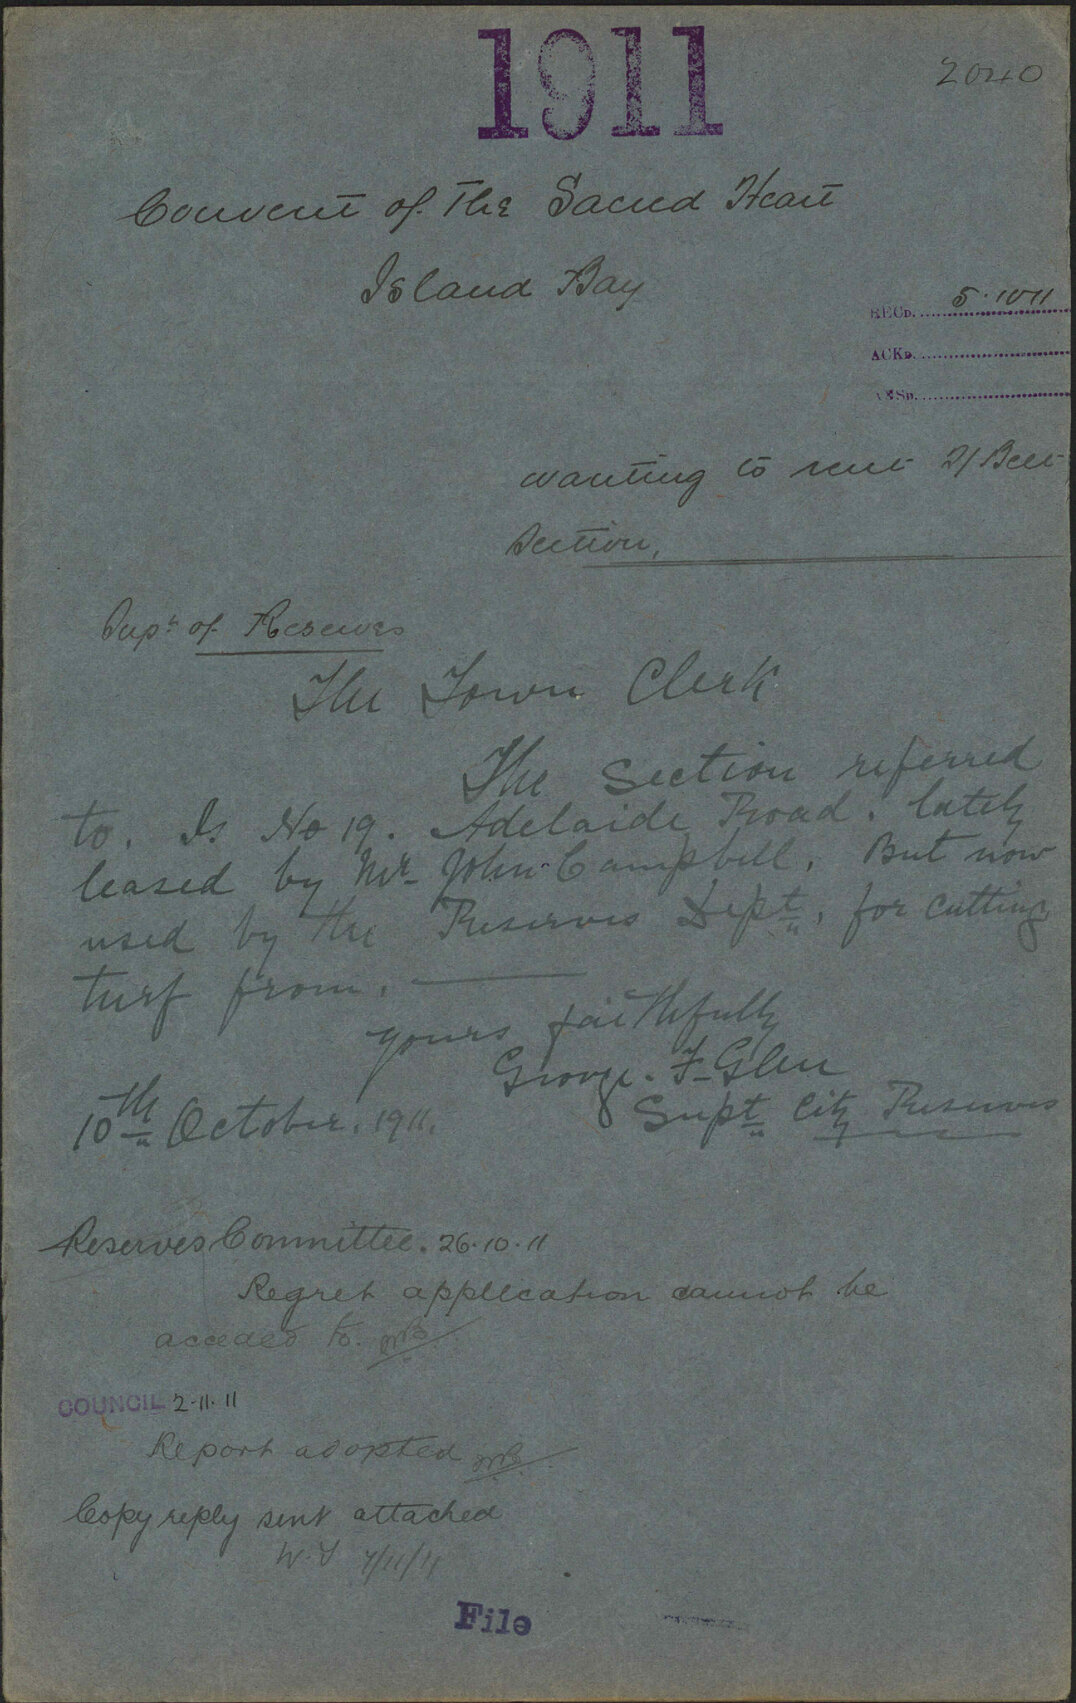 1911
2040
Convent of The Sacred Heart
Island Bay
RECD. 5.10 11
ACKD.
ANSD.
wanting to rent T/Belt
Section,
Supt of Reserves
The Town Clerk
The Section referred
to. Is No 19. Adelaide Road. lately
leased by Mr John Campbell. But now
used by the Reserves Dept. for cutting
turf from.
yours faithfully
George. F. Glen
10th October. 1911.
Supt City Reserves
Reserves Committee. 26.10.11
Regret application cannot be
acceded to.
COUNCIL 2.11.11
Report adopted
Copy reply sent attached
7/11/11
File